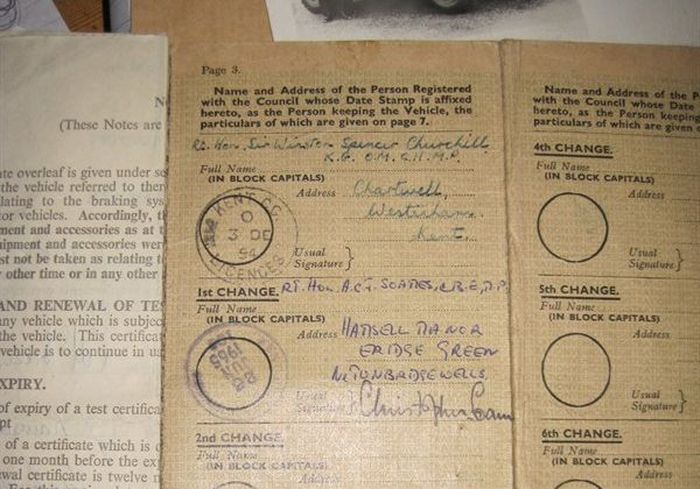 N
(These Notes are
ate overleaf is given under se
the vehicle referred to ther
lating to the braking sys
or vehicles. Accordingly, t
ment and accessories as at t
uipment and accessories wer
st not be taken as relating t
other time or in any other
AND RENEWAL OF TES
any vehicle which is subjec
the vehicle. This certificat
vehicle is to continue in us
XPIRY.
of expiry of a test certifica
pt
of a certificate which is
one month before the exp
wal certificate is twelve n
Page 3.
Name and Address of the Person Registered
with the Council whose Date Stamp is affixed
hereto, as the Person keeping the Vehicle, the
particulars of which are given on page 7.
Rt. Hon. Sir Winston Spencer Churchill.
K.G. O.M. C.H. M.P.
Full Name
(IN BLOCK CAPITALS)
Address Chartwell,
Westerham,
Kent.
KENT C.C.
3 DE
54
LICENCES
Usual
Signature
1st CHANGE. Rt. Hon. A.C.J. SOAMES, C.B.E., M.P.
Full Name
(IN BLOCK CAPITALS)
Address HAMSELL MANOR
ERIDGE GREEN
Nr TUNBRIDGE WELLS.
1965
Usual
Signature Christopher Soames
2nd CHANGE
Full Name
(IN BLOCK CAPITALS)
Address
Name and Address of the P
with the Council whose Date
hereto, as the Person keeping
particulars of which are given
4th CHANGE.
Full Name
(IN BLOCK CAPITALS)
Address
Usual
Signature
5th CHANGE.
Full Name
(IN BLOCK CAPITALS)
Address
Usual
Signature
6th CHANGE.
Full Name
(IN BLOCK CAPITALS)
Address